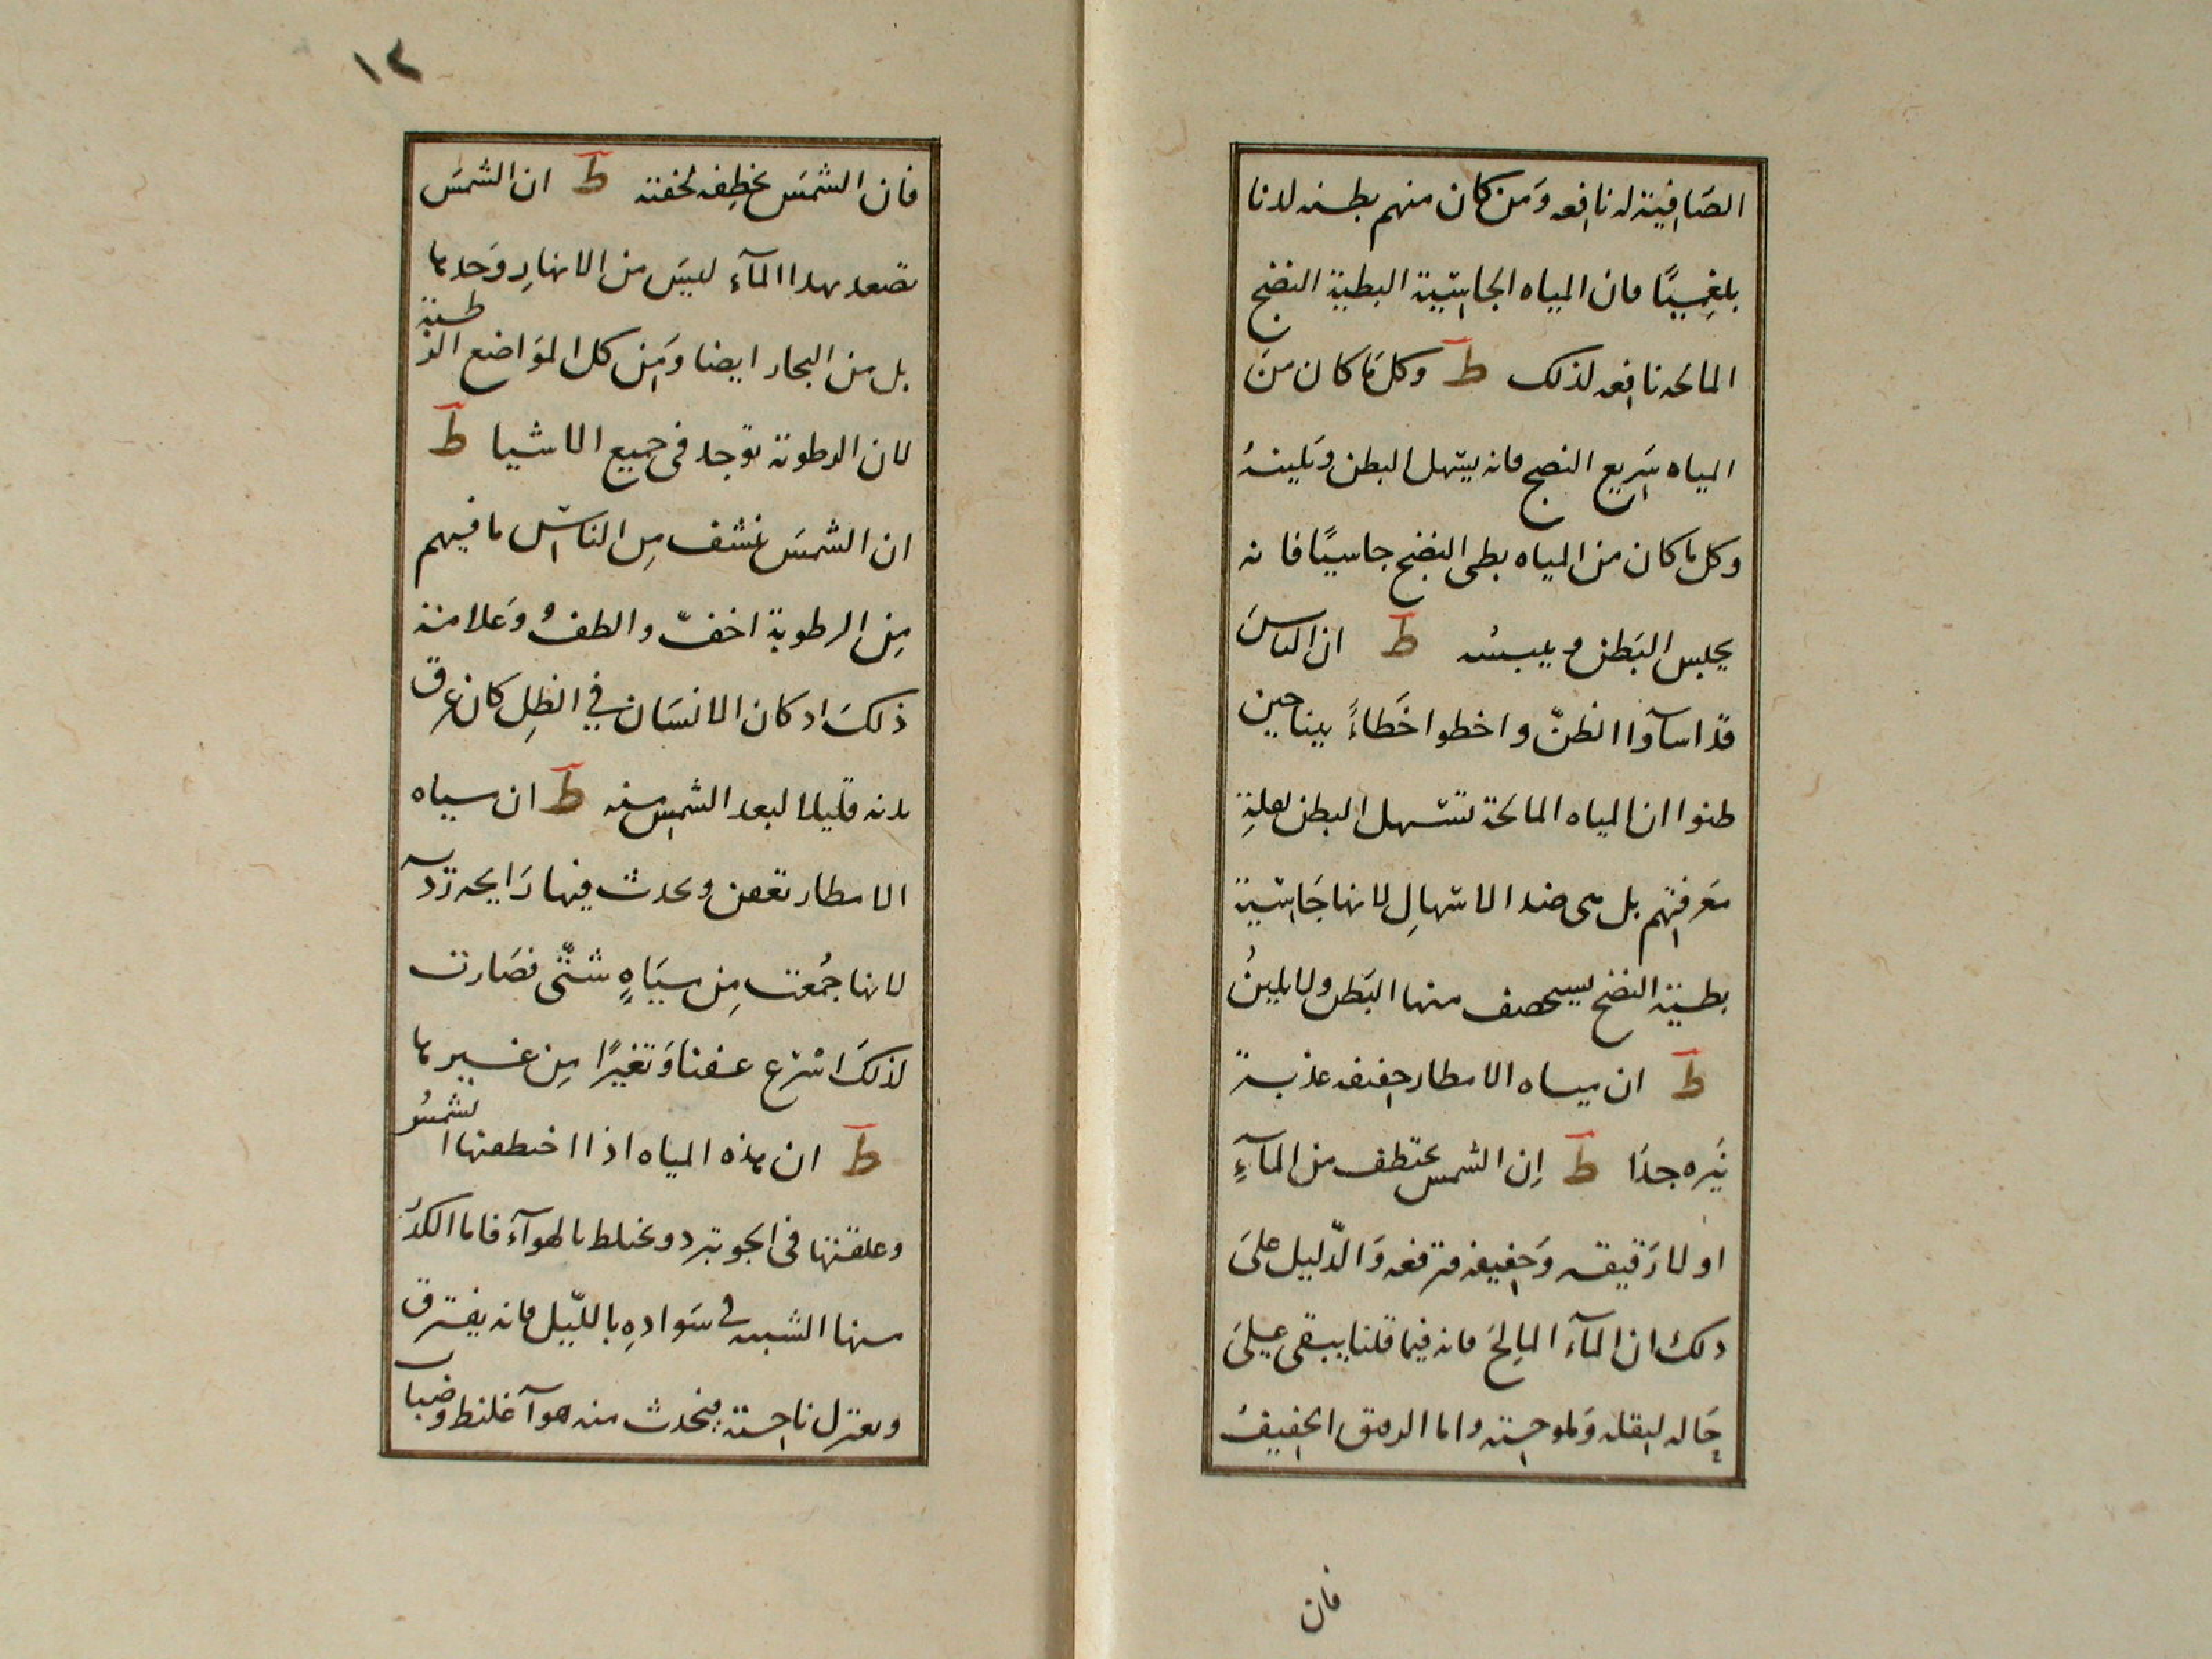 الصَافِيَة له نافِعه وَمَن كان منهم بطنه لدنا
بلغميًا فان المياه الجاسِيَة البطيّة النضج
المالحه نافعه لذلك ط وكل مَا كان منَ
المياه سَريع النضج فانه يسهل البطن وَيلينهُ
وكل ما كان من المياه بطى النضج جاسيًا فانه
يحبس البَطن وييبسُه ط ان الناسَ
قد اسآوا الظنّ واخطوا خَطاءً بينا حين
ظنوا ان المياه المالحة تسهل البطن لعلةِ
مَعرفتهم بل هى ضد الاسهالِ لانها جَاسيَة
بطيئة النضج يستحصف منها البَطن ولا يلينُ
ط ان مياه الامطار خفيفه عذبة
نَيره جدًا ط اِن الشمس تختطف من المآءِ
اولا رَقيقه وَخفيفه فترفعه وَالدّليل علىَ
ذلك ان المآء المالِحَ فانه فيما قلنا يبقى علىَ
حَاله لثقله وَلملوحته واما الرقيق الخفيفُ
فان
١٢
فان الشمَس تخطِفه لخفته ط ان الشمسَ
تصعد بهذا المآء ليسَ من الانهارِ وَحدها
بل من البحار ايضا وَمِن كل الموَاضع الرطبة
لان الرطوبة توجد فى جميع الاشيا ط
ان الشمسَ تنشف مِن الناسِ ما فيهم
مِن الرطوبة اخفّ والطفُ وَعلامة
ذلكَ اذ كان الانسَان في الظِل كان عرق
بدنه قليلا لبعد الشمسِ منه ط ان مياه
الامطار تعفن وتحدث فيها رَايحه ردّية
لانها جُمعت مِن ميَاهٍ شتّى فصَارت
لذلكَ اسْرع عفنا وَتغيرًا مِن غيرها
ط ان هذه المياه اذا اختطفتها الشمسُ
وعلقتها فى الجو تبرد وتختلط بالهوآء فاما الكدُر
منها الشبيه في سَوادِهِ بالليّل فانه يفترق
ويعتزل ناحيته فيحدث منه هوآ غليظ وضباب